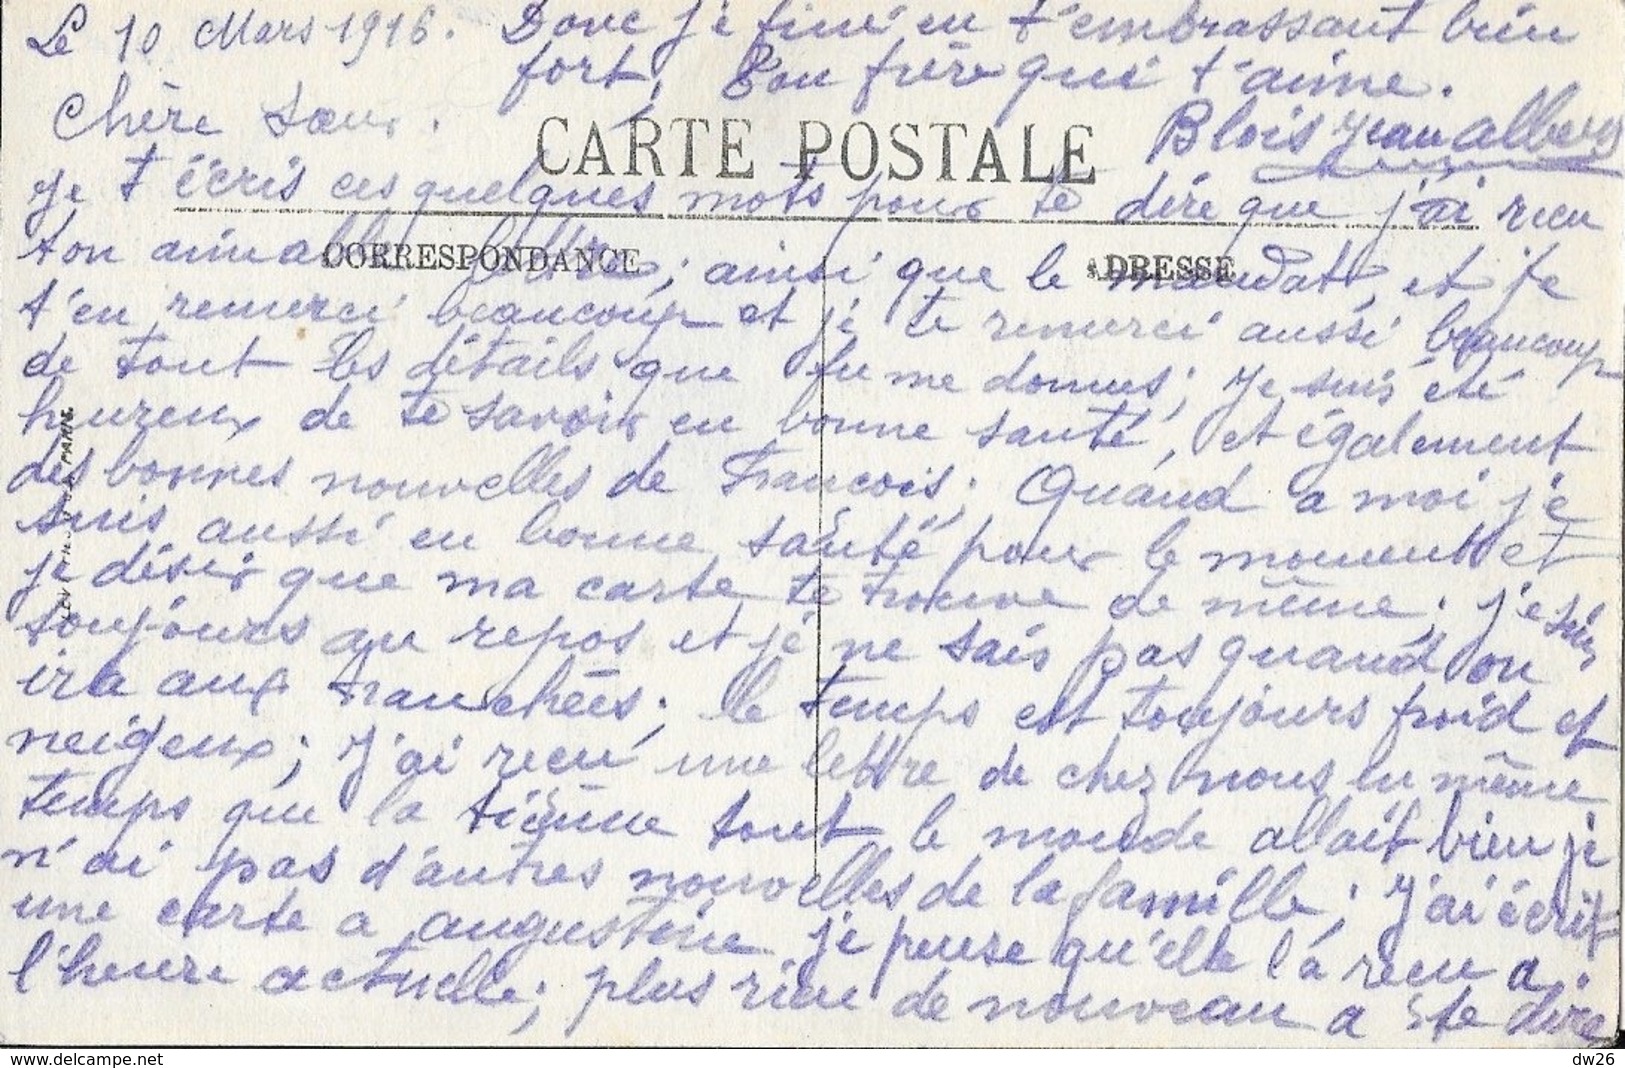 Le 10 Mars 1916. Donc je fini en t'embrassant bien
fort, Ton frère qui t'aime.
Chère Sœur.
Blois Jean Albert
CARTE POSTALE
je t'écris ces quelques mots pour te dire que j'ai recu
CORRESPONDANCE
ADRESSE
ton aimable lettre; ainsi que le mandat, et je
t'en remerci beaucoup et je te remerci aussi beaucoup
de tout les détails que tu me donnes; je suis été
heureux de te savoir en bonne santé, et également
des bonnes nouvelles de Francois; Quand a moi je
suis aussi en bonne santé pour le moment et
je désir que ma carte te trouve de même; je suis
toujours au repos et je ne sais pas quand on
ira aux tranchées; le temps est toujours froid et
neigeux; J'ai recu une lettre de chez nous en même
temps que la tiènne tout le monde allait bien je
n'ai pas d'autres nouvelles de la famille; J'ai écrit
une carte a augustine je pense qu'elle l'a recu a
l'heure actuelle; plus rien de nouveau a te dire
dw26